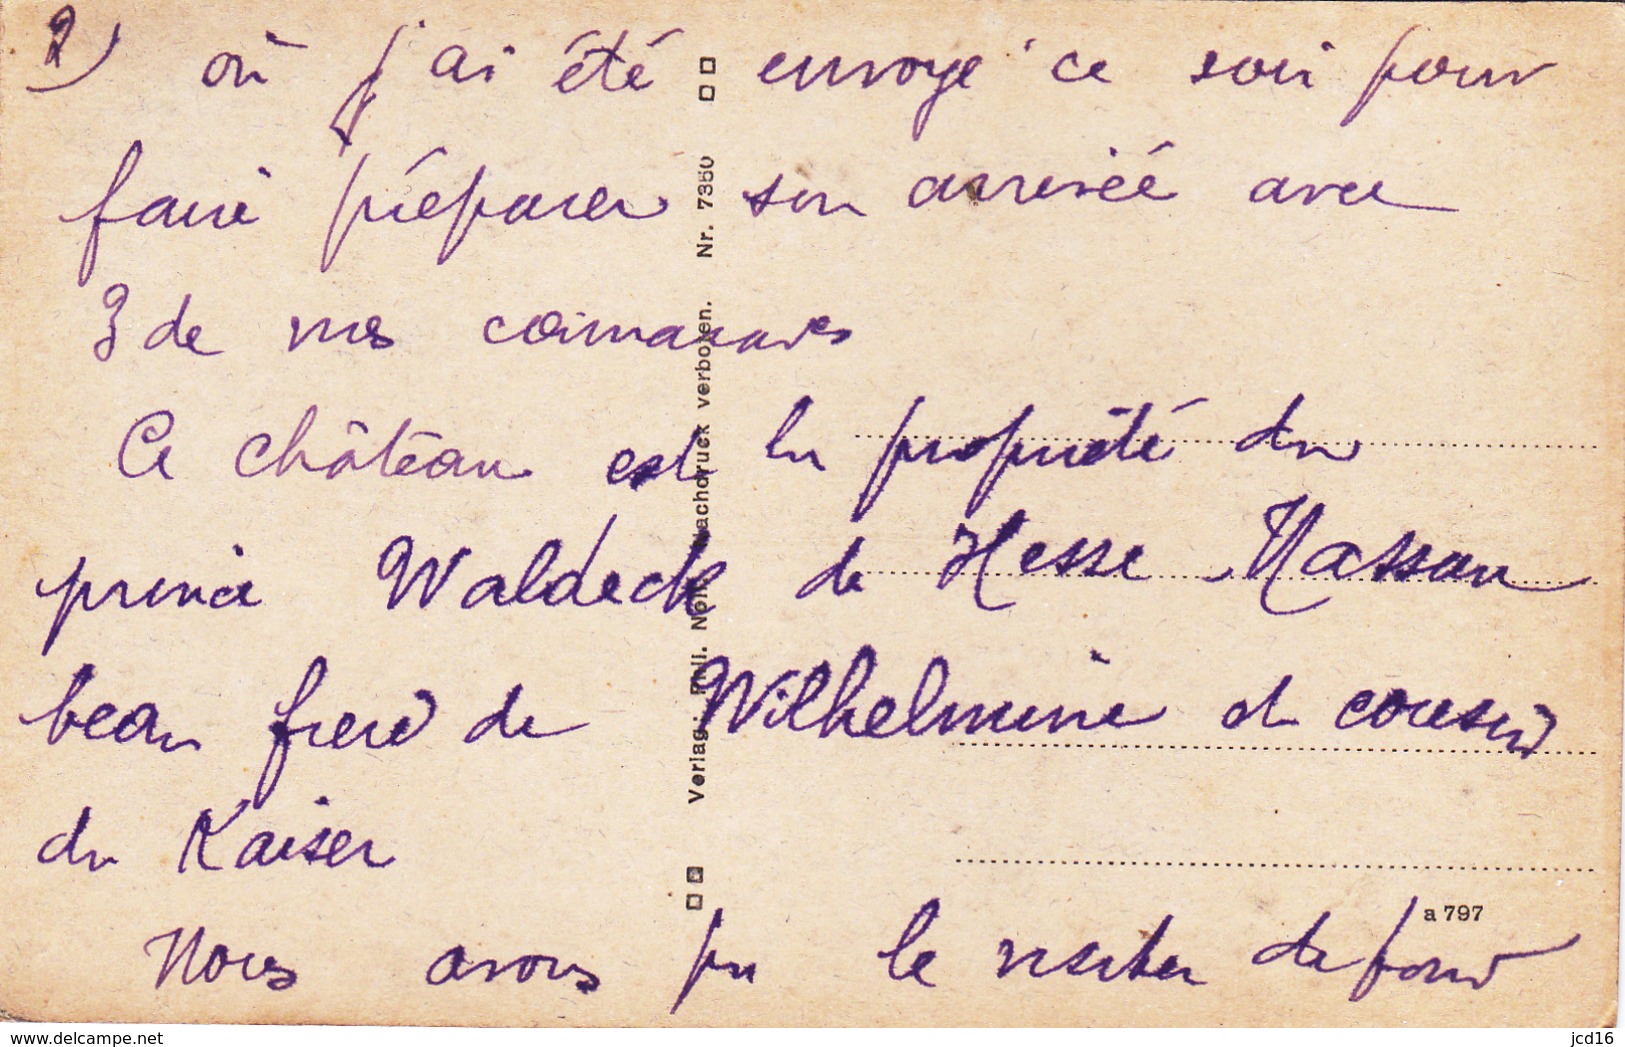 2) où j'ai été envoyé ce soir pour
faire préparer son arrivée avec
3 de mes camarades
Ce château est la propriété du
prince Waldeck de Hesse Nassau
beau frere de Wilhelmine et cousin
du Kaiser
Nous avons pu le visiter de fond
Verlag: Nachdruck verboten. Nr. 7350
a 797
www.delcampe.net
jcd16